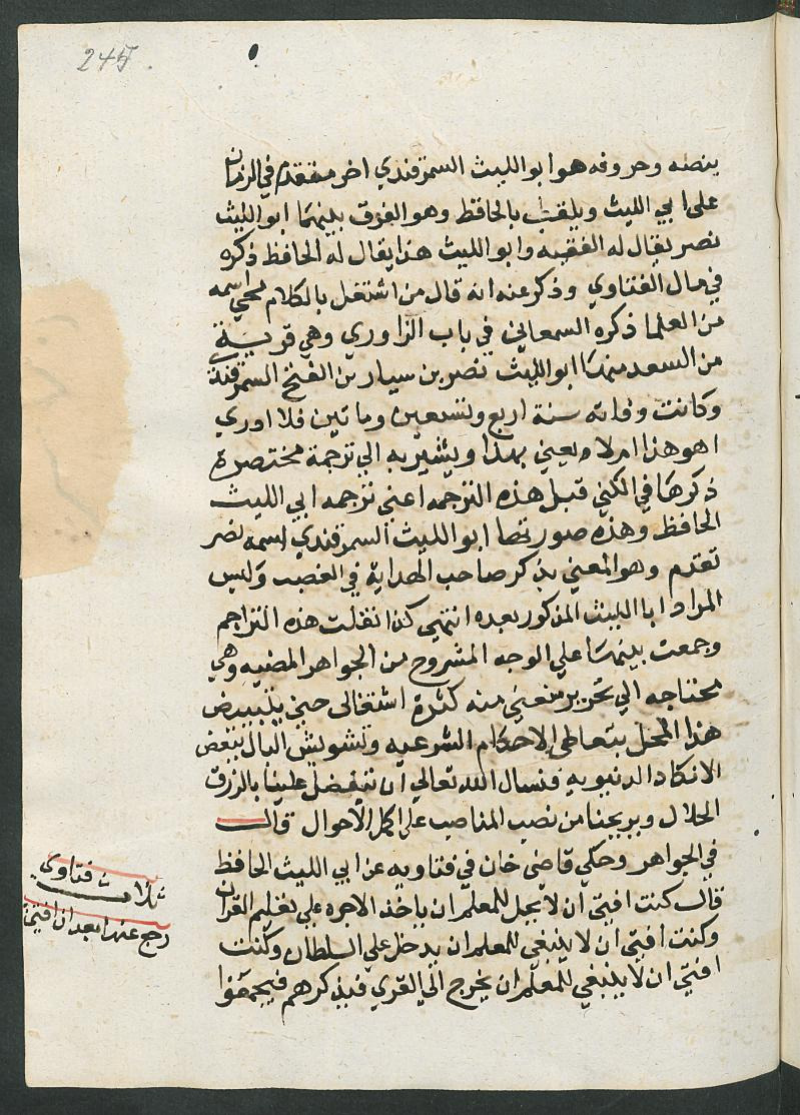 245
بنصه وحروفه هو ابو الليث السمرقندي اخر متقدم في الزمان
على ابي الليث ويلقب بالحافظ وهو الفرق بينهما ابو الليث
نصر يقال له الفقيه وابو الليث هذا يقال له الحافظ ذكره
في مال الفتاوي وذكر عنه انه قال من اشتغل بالكلام محي اسمه
من العلما ذكره السمعاني في باب الزاوري وهي قرية
من السعد منها ابو الليث نصر بن سيار بن الفتح السمرقندي
وكانت وفاته سنة اربع وتسعين وماتين فلا ادري
اهو هذا ام لا ويعني بهذا ويشير به الي ترجمة مختصرة
ذكرها في الكني قبل هذه الترجمه اعني ترجمه ابي الليث
الحافظ وهذه صورتها ابو الليث السمرقندي اسمه نصر
تقدم وهو المعني بذكر صاحب الهداية في الغصب وليس
المراد ابا الليث المذكور بعده انتهي كذا نقلت هذه التراجم
وجمعت بينها علي الوجه المشروح من الجواهر المضيه وهي
محتاجه الي تحرير منعني منه كثرة اشتغالى حين تبييض
هذا المحل بتعاطي الاحكام الشرعيه وتشويش البال ببعض
الانكاد الدنيويه ونسال الله تعالي ان يتفضل علينا بالرزق
الحلال ويريحنا من نصب المناصب على اكمل الاحوال قال
في الجواهر وحكي قاضي خان في فتاويه عن ابي الليث الحافظ
قال كنت افتي ان لا يحل للمعلم ان ياخذ الاجره علي تعليم القران
وكنت افتي ان لا ينبغي للمعلم ان يدخل علي السلطان وكنت
افتي ان لا ينبغي للمعلم ان يخرج الي القري فيذكرهم فيجمعوا
ثلاث فتاوي
رجع عنها بعد ان افتي بها